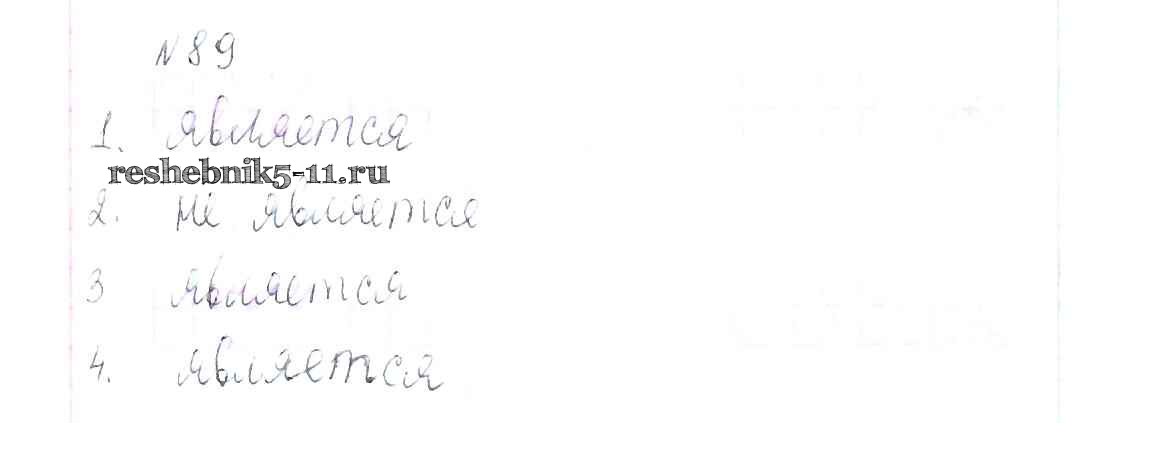 №89
1. является
reshebnik5-11.ru
2. не является
3 является
4. является